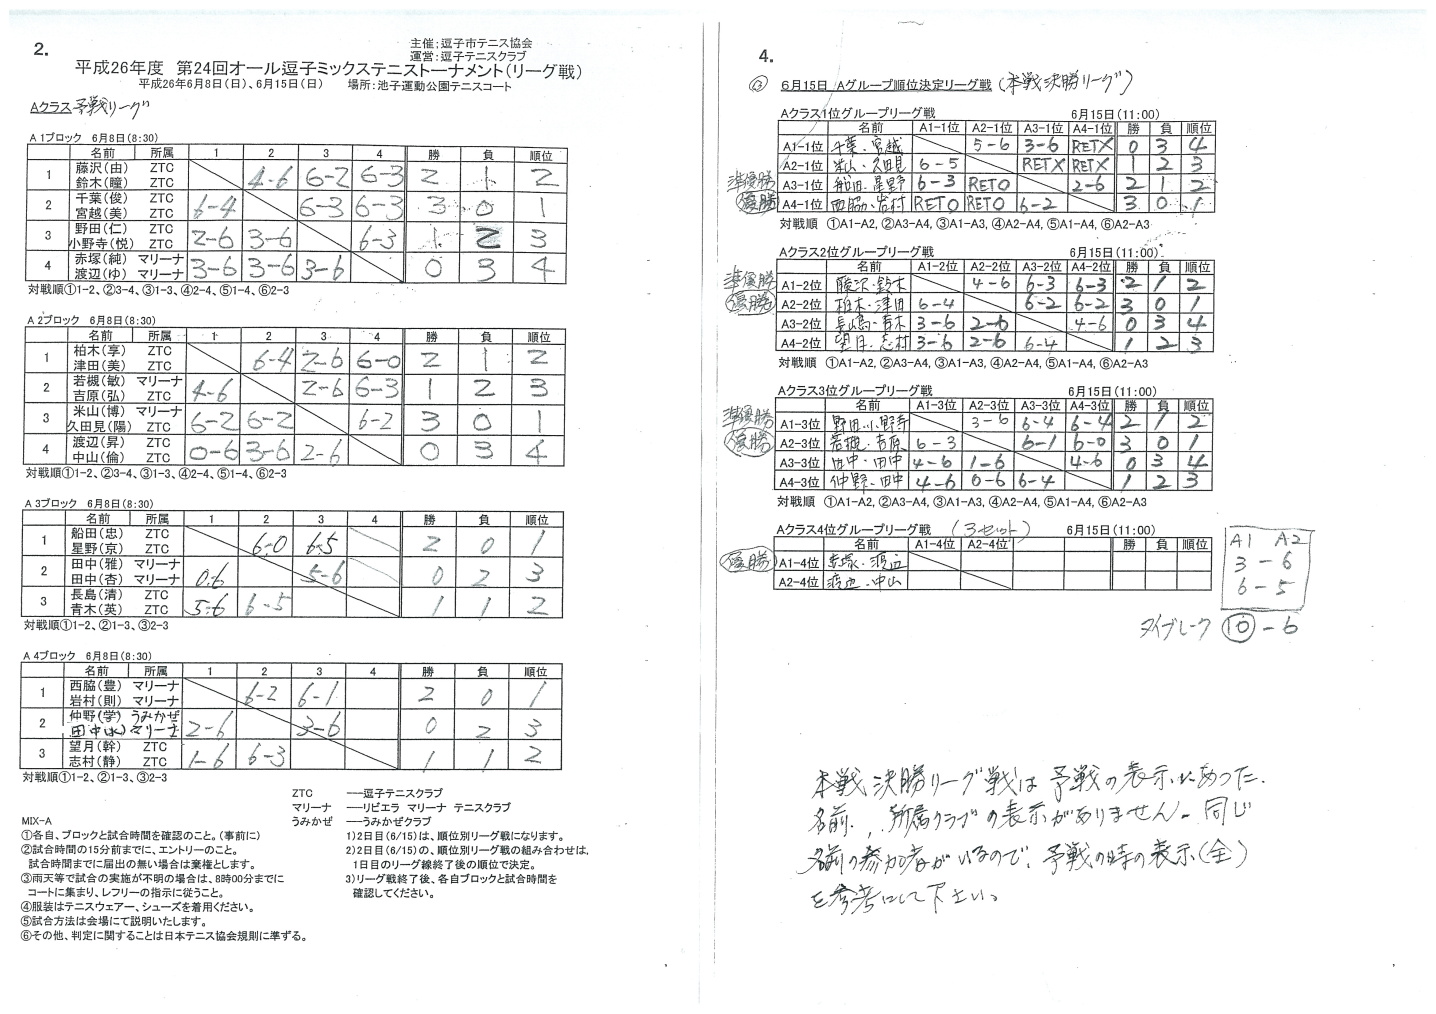 2.
主催:逗子市テニス協会
運営:逗子テニスクラブ
平成26年度　第24回オール逗子ミックステニストーナメント(リーグ戦)
平成26年6月8日(日)、6月15日(日)　場所:池子運動公園テニスコート
Aクラス 予戦リーグ
A 1ブロック　6月8日(8:30)
名前 所属 1 2 3 4 勝 負 順位
1 藤沢(由) ZTC 4-6 6-2 6-3 2 1 2
鈴木(瞳) ZTC
2 千葉(俊) ZTC 6-4 6-3 6-3 3 0 1
宮越(美) ZTC
3 野田(仁) ZTC 2-6 3-6 6-3 1 2 3
小野寺(悦) ZTC
4 赤塚(純) マリーナ 3-6 3-6 3-6 0 3 4
渡辺(ゆ) マリーナ
対戦順①1-2、②3-4、③1-3、④2-4、⑤1-4、⑥2-3
A 2ブロック　6月8日(8:30)
名前 所属 1 2 3 4 勝 負 順位
1 柏木(享) ZTC 6-4 2-6 6-0 2 1 2
津田(美) ZTC
2 若槻(敏) マリーナ 4-6 2-6 6-3 1 2 3
吉原(弘) ZTC
3 米山(博) マリーナ 6-2 6-2 6-2 3 0 1
久田見(陽) ZTC
4 渡辺(昇) ZTC 0-6 3-6 2-6 0 3 4
中山(倫) ZTC
対戦順①1-2、②3-4、③1-3、④2-4、⑤1-4、⑥2-3
A 3ブロック　6月8日(8:30)
名前 所属 1 2 3 4 勝 負 順位
1 船田(忠) ZTC 6-0 6-5 2 0 1
星野(京) ZTC
2 田中(雅) マリーナ 0-6 5-6 0 2 3
田中(杏) マリーナ
3 長島(清) ZTC 5-6 6-5 1 1 2
青木(英) ZTC
対戦順①1-2、②1-3、③2-3
A 4ブロック　6月8日(8:30)
名前 所属 1 2 3 4 勝 負 順位
1 西脇(豊) マリーナ 6-2 6-1 2 0 1
岩村(則) マリーナ
2 仲野(学) うみかぜ 2-6 3-6 0 2 3
田中(水) マリーナ
3 望月(幹) ZTC 1-6 6-3 1 1 2
志村(静) ZTC
対戦順①1-2、②1-3、③2-3
ZTC ---逗子テニスクラブ
マリーナ ---リビエラ マリーナ テニスクラブ
うみかぜ ---うみかぜクラブ
MIX-A
①各自、ブロックと試合時間を確認のこと。(事前に)
②試合時間の15分前までに、エントリーのこと。
試合時間までに届出の無い場合は棄権とします。
③雨天等で試合の実施が不明の場合は、8時00分までに
コートに集まり、レフリーの指示に従うこと。
④服装はテニスウェアー、シューズを着用ください。
⑤試合方法は会場にて説明いたします。
⑥その他、判定に関することは日本テニス協会規則に準ずる。
1)2日目(6/15)は、順位別リーグ戦になります。
2)2日目(6/15)の、順位別リーグ戦の組み合わせは、
1日目のリーグ線終了後の順位で決定。
3)リーグ戦終了後、各自ブロックと試合時間を
確認してください。
4.
6月15日 Aグループ順位決定リーグ戦 (本戦決勝リーグ)
Aクラス1位グループリーグ戦 6月15日(11:00)
名前 A1-1位 A2-1位 A3-1位 A4-1位 勝 負 順位
A1-1位 千葉・宮越 5-6 3-6 RET X 0 3 4
A2-1位 米山・久田見 6-5 RET X RET X 1 2 3
準優勝 A3-1位 船田・星野 6-3 RET O 2-6 2 1 2
優勝 A4-1位 西脇・岩村 RET O RET O 6-2 3 0 1
対戦順　①A1-A2, ②A3-A4, ③A1-A3, ④A2-A4, ⑤A1-A4, ⑥A2-A3
Aクラス2位グループリーグ戦 6月15日(11:00)
名前 A1-2位 A2-2位 A3-2位 A4-2位 勝 負 順位
準優勝 A1-2位 藤沢・鈴木 4-6 6-3 6-3 2 1 2
優勝 A2-2位 柏木・津田 6-4 6-2 6-2 3 0 1
A3-2位 長島・青木 3-6 2-6 4-6 0 3 4
A4-2位 望月・志村 3-6 2-6 6-4 1 2 3
対戦順　①A1-A2, ②A3-A4, ③A1-A3, ④A2-A4, ⑤A1-A4, ⑥A2-A3
Aクラス3位グループリーグ戦 6月15日(11:00)
名前 A1-3位 A2-3位 A3-3位 A4-3位 勝 負 順位
準優勝 A1-3位 野田・小野寺 3-6 6-4 6-4 2 1 2
優勝 A2-3位 若槻・吉原 6-3 6-1 6-0 3 0 1
A3-3位 田中・田中 4-6 1-6 4-6 0 3 4
A4-3位 仲野・田中 4-6 0-6 6-4 1 2 3
対戦順　①A1-A2, ②A3-A4, ③A1-A3, ④A2-A4, ⑤A1-A4, ⑥A2-A3
Aクラス4位グループリーグ戦 (3セット) 6月15日(11:00)
名前 A1-4位 A2-4位 勝 負 順位
優勝 A1-4位 赤塚・渡辺
A2-4位 渡辺・中山
A1 A2
3 - 6
6 - 5
タイブレーク ⑩ - 6
本戦 決勝リーグ戦は 予戦の表示にあった.
名前., 所属クラブの表示がありません. 同じ
名前の参加者がいるので、予戦の時の表示(全)
を参考にして下さい。